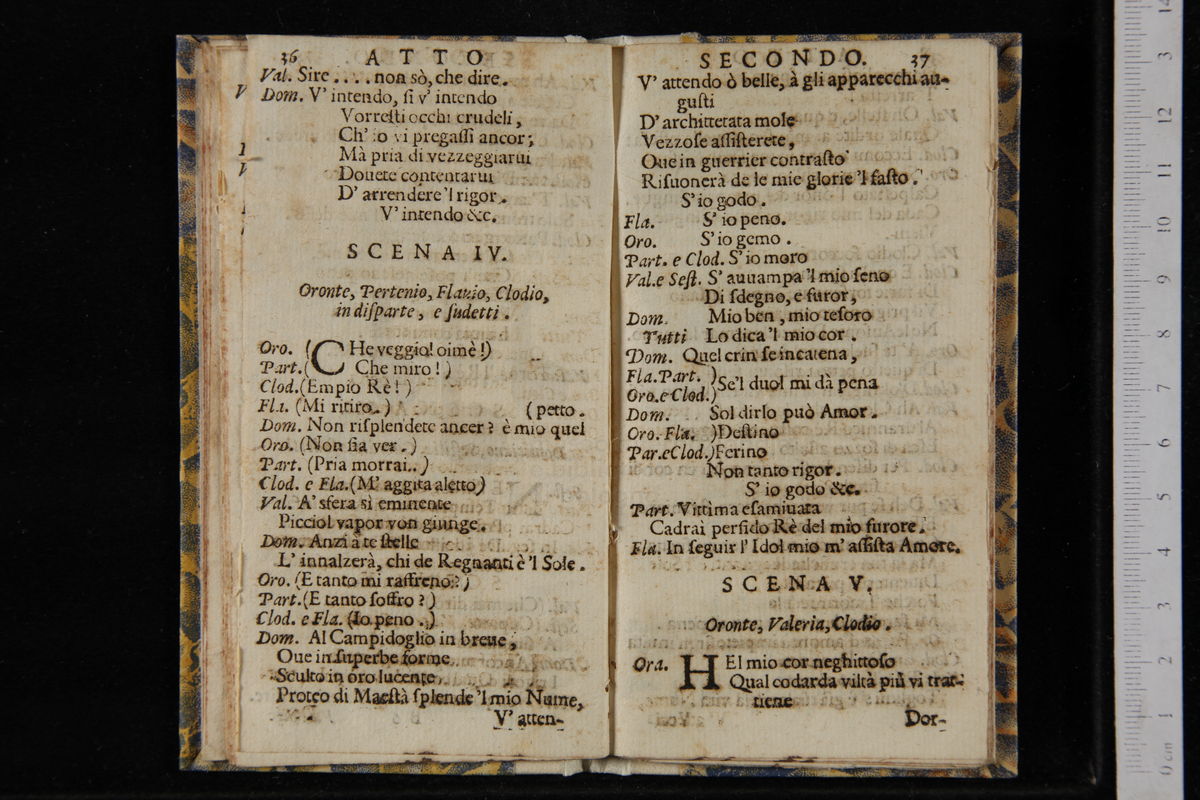 36 ATTO
Val. Sire .... non sò, che dire.
Dom. V' intendo, ſi v' intendo
Vorreſti occhi crudeli,
Ch' io vi pregaſſi ancor;
Mà pria di vezzeggiarui
Douete contentarui
D' arrendere 'l rigor.
V' intendo &c.
SCENA IV.
Oronte, Pertenio, Flauio, Clodio,
in diſparte, e ſudetti.
Oro. (CHe veggio! oimè!)
Part. ( Che miro!)
Clod. (Empio Rè!)
Fla. (Mi ritiro.) (petto.
Dom. Non riſplendete ancer? è mio quel
Oro. (Non ſia ver.)
Part. (Pria morrai..)
Clod. e Fla. (M' aggita aletto)
Val. A' sfera sì eminente
Picciol vapor von giunge.
Dom. Anzi à te ſtelle
L' innalzerà, chi de Regnanti è 'l Sole.
Oro. (E tanto mi raffreno?)
Part. (E tanto ſoffro?)
Clod. e Fla. (Io peno.)
Dom. Al Campidoglio in breue,
Oue in ſuperbe forme
Sculto in oro lucente
Proteo di Maeſtà ſplende 'l mio Nume,
V' atten-
SECONDO. 37
V' attendo ò belle, à gli apparecchi au-
guſti
D' archittetata mole
Vezzoſe aſſiſterete,
Oue in guerrier contraſto
Riſuonerà de le mie glorie 'l faſto.
S' io godo.
Fla. S' io peno.
Oro. S' io gemo.
Part. e Clod. S' io moro
Val. e Seſt. S' auuampa 'l mio ſeno
Di ſdegno, e furor,
Dom. Mio ben, mio teſoro
Tutti Lo dica 'l mio cor.
Dom. Quel crin ſe incatena,
Fla. Part. )
Oro. e Clod.) Se'l duol mi dà pena
Dom. Sol dirlo può Amor.
Oro. Fla. )Deſtino
Par. e Clod.)Ferino
Non tanto rigor.
S' io godo &c.
Part. Vittima eſamiuata
Cadrai perfido Rè del mio furore.
Fla. In ſeguir l' Idol mio m' aſſiſta Amore.
SCENA V.
Oronte, Valeria, Clodio.
Ora. HEl mio cor neghittoſo
Qual codarda viltà più vi trat-
tiene
Dor-